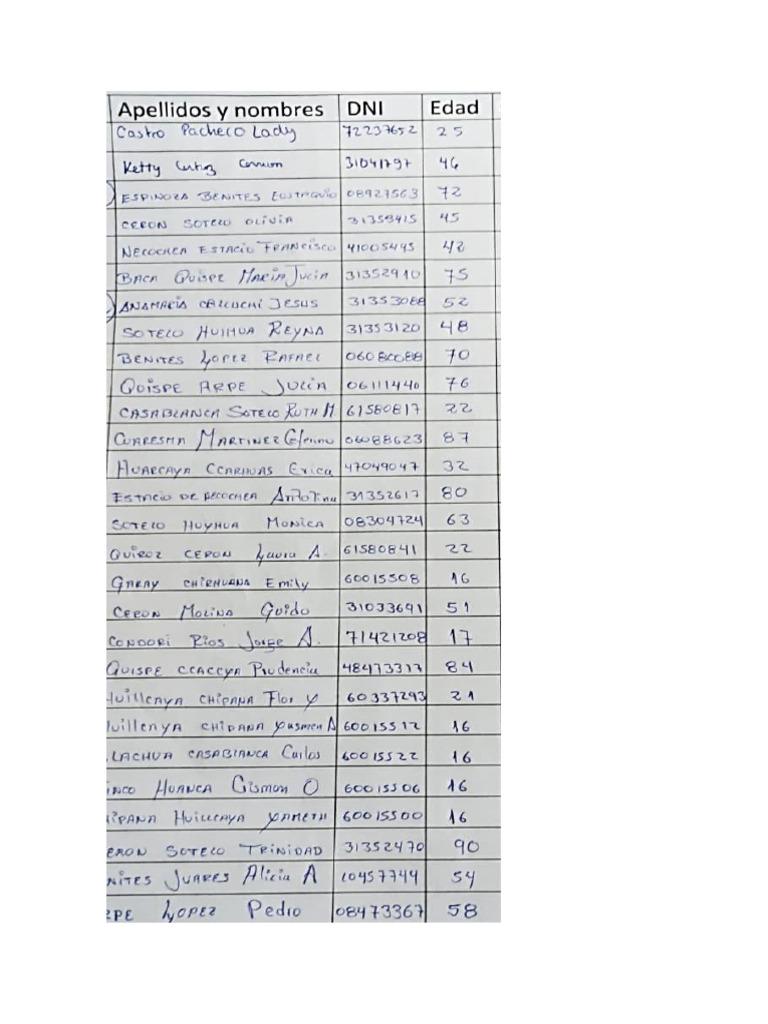 Apellidos y nombres DNI Edad
Castro Pacheco Lady 72237652 25
Ketty 31041797 46
ESPINOZA BENITES EUSTAQUIO 08927563 72
CERON SOTELO OLIVIA 31359415 45
NECOCHEA ESTACIO FRANCISCO 41005445 42
BACA QUISPE MARIA JULIA 31352910 75
ANAMARIA CCLLUCHI JESUS 31353088 52
SOTELO HUIHUA REYNA 31353120 48
BENITES LOPEZ RAFAEL 70
QUISPE ARPE JULIA 06111440 76
CASABLANCA SOTELO RUTH M 61580817 22
CUARESMA MARTINEZ 06088623 87
HUARCAYA CCARHUAS Erica 47049047 32
ESTACIO DE NECOCHEA Antolina 31352617 80
SOTELO HUYHUA MONICA 08304724 63
QUIROZ CERON Laura A. 61580841 22
GARAY CHIRHUANA Emily 60015508 16
CERON MOLINA Guido 31033691 51
CONDORI RIOS Jorge A. 71421208 17
QUISPE CCACCYA Prudencia 48473317 84
Huillcaya CHIPANA Flor Y 60337293 21
Huillcaya CHIPANA Yasmen A 60015512 16
LACHUA CASABIANCA Carlos 60015522 16
INCO HUANCA Gismon O 60015506 16
HIPANA HUILLCAYA YAMETH 60015500 16
ERON SOTELO TRINIDAD 31352470 90
NITES JUARES Alicia A 10457744 54
RPE LOPEZ Pedro 08473367 58